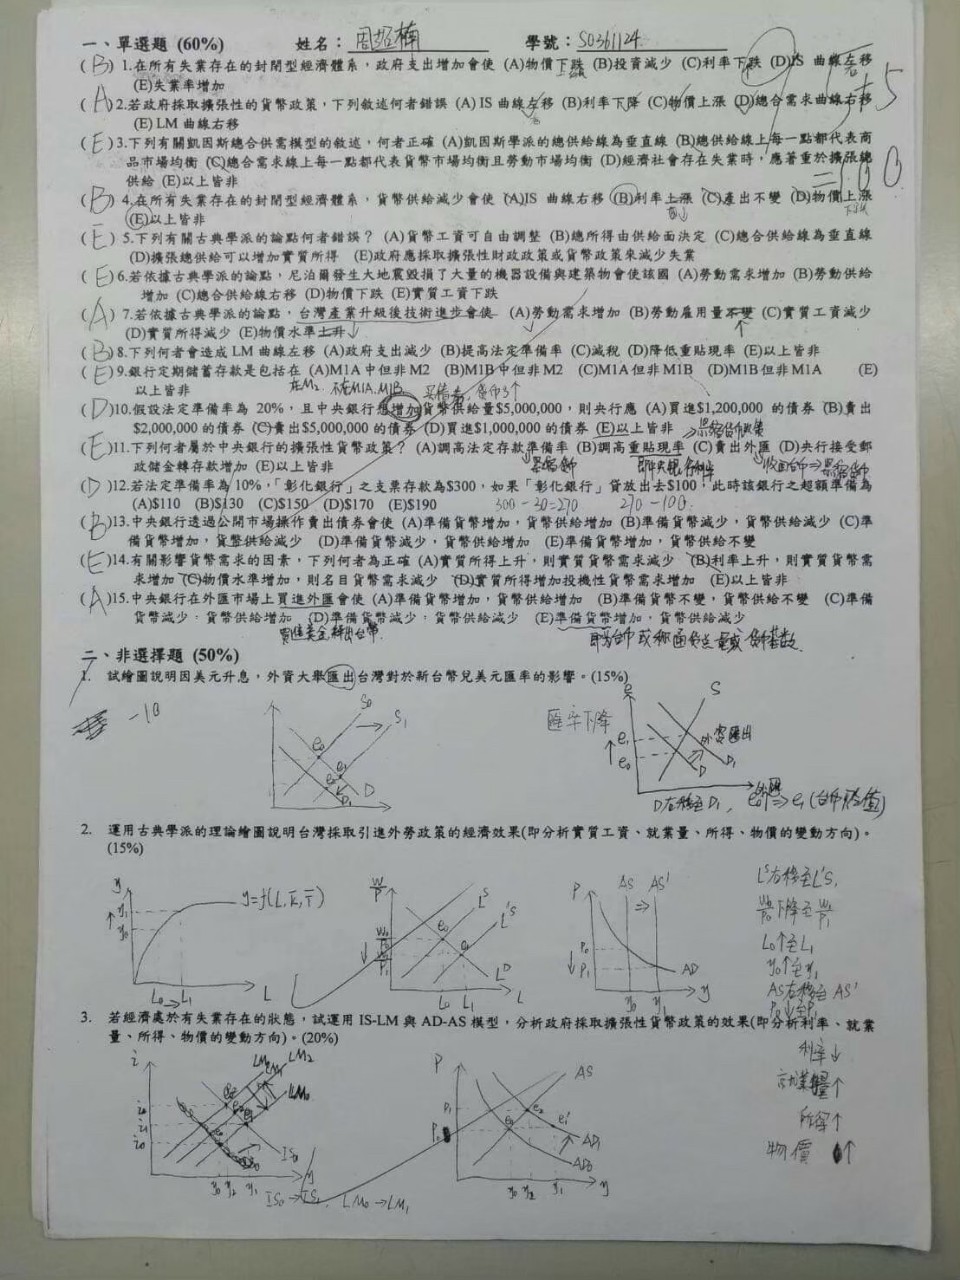 一、單選題 (60%) 姓名： 學號：S0361124
(B) 1.在所有失業存在的封閉型經濟體系，政府支出增加會使 (A)物價下跌 (B)投資減少 (C)利率下跌 (D)IS 曲線左移
(E)失業率增加
(A) 2.若政府採取擴張性的貨幣政策，下列敘述何者錯誤 (A) IS 曲線左移 (B)利率下降 (C)物價上漲 (D)總合需求曲線右移
(E) LM 曲線右移
(E) 3.下列有關凱因斯總合供需模型的敘述，何者正確 (A)凱因斯學派的總供給線為垂直線 (B)總供給線上每一點都代表商
品市場均衡 (C)總合需求線上每一點都代表貨幣市場均衡且勞動市場均衡 (D)經濟社會存在失業時，應著重於擴張總
供給 (E)以上皆非
(B) 4.在所有失業存在的封閉型經濟體系，貨幣供給減少會使 (A)IS 曲線右移 (B)利率上漲 (C)產出不變 (D)物價上漲
(E)以上皆非
(E) 5.下列有關古典學派的論點何者錯誤？ (A)貨幣工資可自由調整 (B)總所得由供給面決定 (C)總合供給線為垂直線
(D)擴張總供給可以增加實質所得 (E)政府應採取擴張性財政政策或貨幣政策來減少失業
(E) 6.若依據古典學派的論點，尼泊爾發生大地震毀損了大量的機器設備與建築物會使該國 (A)勞動需求增加 (B)勞動供給
增加 (C)總合供給線右移 (D)物價下跌 (E)實質工資下跌
(A) 7.若依據古典學派的論點，台灣產業升級後技術進步會使 (A)勞動需求增加 (B)勞動雇用量不變 (C)實質工資減少
(D)實質所得減少 (E)物價水準上升↓
(B) 8.下列何者會造成 LM 曲線左移 (A)政府支出減少 (B)提高法定準備率 (C)減稅 (D)降低重貼現率 (E)以上皆非
(E) 9.銀行定期儲蓄存款是包括在 (A)M1A 中但非 M2 (B)M1B 中但非 M2 (C)M1A 但非 M1B (D)M1B 但非 M1A (E)
以上皆非 在M2 不在M1A.M1B
(D)10.假設法定準備率為 20%，且中央銀行想增加貨幣供給量$5,000,000，則央行應 (A)買進$1,200,000 的債券 (B)賣出
$2,000,000 的債券 (C)賣出$5,000,000 的債券 (D)買進$1,000,000 的債券 (E)以上皆非
(E)11.下列何者屬於中央銀行的擴張性貨幣政策？ (A)調高法定存款準備率 (B)調高重貼現率 (C)賣出外匯 (D)央行接受郵
政儲金轉存款增加 (E)以上皆非
(D)12.若法定準備率為 10%，「彰化銀行」之支票存款為$300，如果「彰化銀行」貸放出去$100，此時該銀行之超額準備為
(A)$110 (B)$130 (C)$150 (D)$170 (E)$190 300-30=270 270-100
(B)13.中央銀行透過公開市場操作賣出債券會使 (A)準備貨幣增加，貨幣供給增加 (B)準備貨幣減少，貨幣供給減少 (C)準
備貨幣增加，貨幣供給減少 (D)準備貨幣減少，貨幣供給增加 (E)準備貨幣增加，貨幣供給不變
(E)14.有關影響貨幣需求的因素，下列何者為正確 (A)實質所得上升，則實質貨幣需求減少 (B)利率上升，則實質貨幣需
求增加 (C)物價水準增加，則名目貨幣需求減少 (D)實質所得增加投機性貨幣需求增加 (E)以上皆非
(A)15.中央銀行在外匯市場上買進外匯會使 (A)準備貨幣增加，貨幣供給增加 (B)準備貨幣不變，貨幣供給不變 (C)準備
貨幣減少，貨幣供給增加 (D)準備貨幣減少，貨幣供給減少 (E)準備貨幣增加，貨幣供給減少
二、非選擇題 (50%)
1. 試繪圖說明因美元升息，外資大舉匯出台灣對於新台幣兌美元匯率的影響。(15%)
-10
S0 S1 e0 e1 e2 D D1
匯率下降 e1 e0 S D D1 外資匯出
D右移至D1
2. 運用古典學派的理論繪圖說明台灣採取引進外勞政策的經濟效果(即分析實質工資、就業量、所得、物價的變動方向)。
(15%)
y y1 y0 y=f(L,K,T) L0 L1 L
W/P LS L'S e0 e1 LD L0 L1 L
P AS AS' P0 P1 AD y0 y1 y
LS右移至L'S,
L0↑至L1
y0↑至y1
AS右移至AS'
P0↓至P1
3. 若經濟處於有失業存在的狀態，試運用 IS-LM 與 AD-AS 模型，分析政府採取擴張性貨幣政策的效果(即分析利率、就業
量、所得、物價的變動方向)。(20%)
利率↓
就業量↑
所得↑
物價↑
i LM2 LM0 IS0 y0 y2 y1 y
P AS P1 P0 e0 e2 e1 AD1 AD0 y0 y2 y1 y
IS0→IS1 LM0→LM1